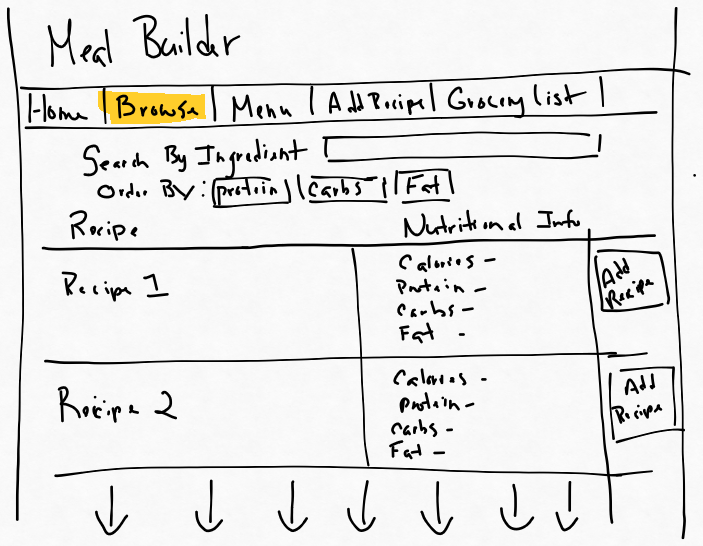 Meal Builder
Home | Browse | Menu | Add Recipe | Grocery list |
Search By Ingredient
Order By: protein carbs Fat
Recipe Nutritional Info
Recipe 1
Calories -
Protein -
Carbs -
Fat -
Add
Recipe
Recipe 2
Calories -
Protein -
Carbs -
Fat -
Add
Recipe